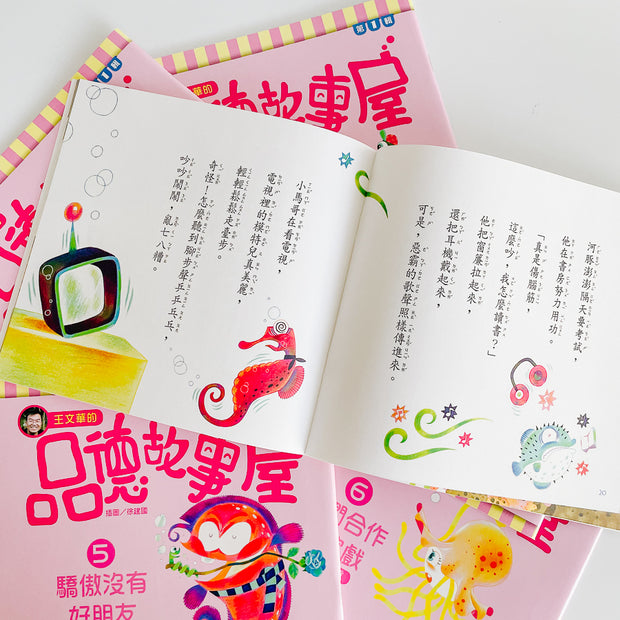 第1輯
王文華的
品德故事屋
小馬哥在看電視，
電視裡的模特兒真美麗，
輕輕鬆鬆走臺步。
奇怪！怎麼聽到腳步聲乒乒乓乓，
吵吵鬧鬧，亂七八糟。
河豚澎澎隔天要考試，
他在書房努力用功。
「真是傷腦筋，
這麼吵，我怎麼讀書？」
他把窗簾拉起來，
還把耳機戴起來，
可是，惡霸的歌聲照樣傳進來。
20
王文華的
品德故事屋
插圖／徐建國
5
驕傲沒有
好朋友
屋
6
合作
遊戲